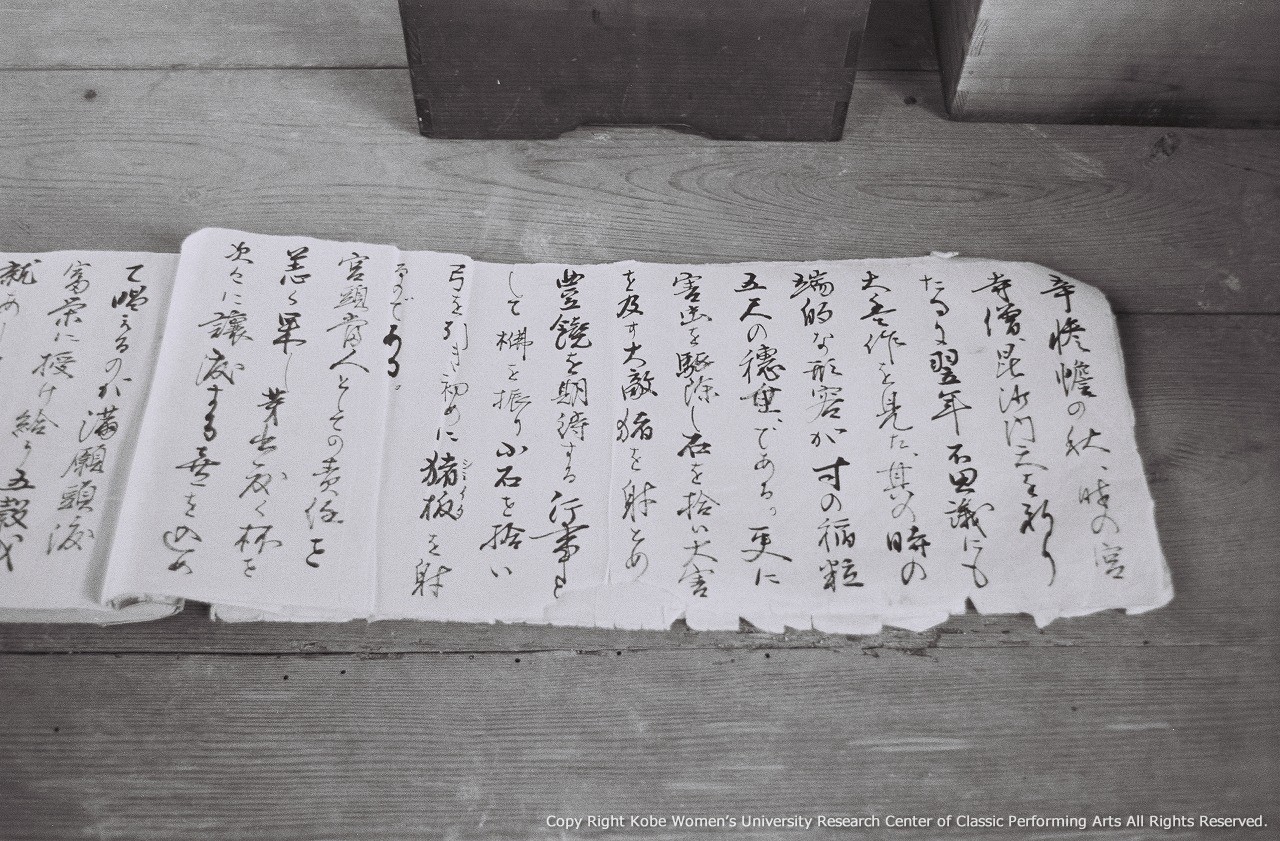 辛惨憺の秋、時の宮
寺僧、毘沙門天を祈り
たるに翌年不思議にも
大豊作を見た、其の時の
端的な形容が寸の稲粒
五尺の穂垂、である。更に
害虫を駆除し石を拾い大害
を及す大敵猪を射とめ
豊饒を期待する行事と
して 梻を振り小石を拾い
弓を引き初めに猪板を射
シシイタ
るのである。
宮頭當人としての責任を
恙く果し芽出度く杯を
次々に譲渡する意を込め
て唱えるのが満願頭渡
富栄に授け給う五穀成
就あ
Copy Right Kobe Women's University Research Center of Classic Performing Arts All Rights Reserved.